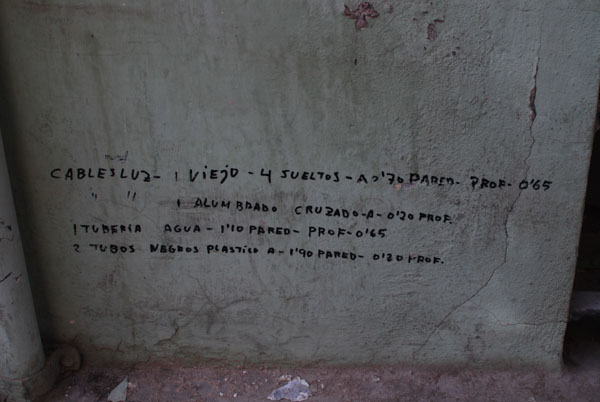 CABLES LUZ - 1 VIEJO - 4 SUELTOS - A 0'70 PARED - PROF - 0'65
" " 1 ALUMBRADO CRUZADO - A - 0'20 PROF.
1 TUBERIA AGUA - 1'10 PARED - PROF - 0'65
2 TUBOS NEGROS PLASTICO A - 1'90 PARED - 0'20 PROF.